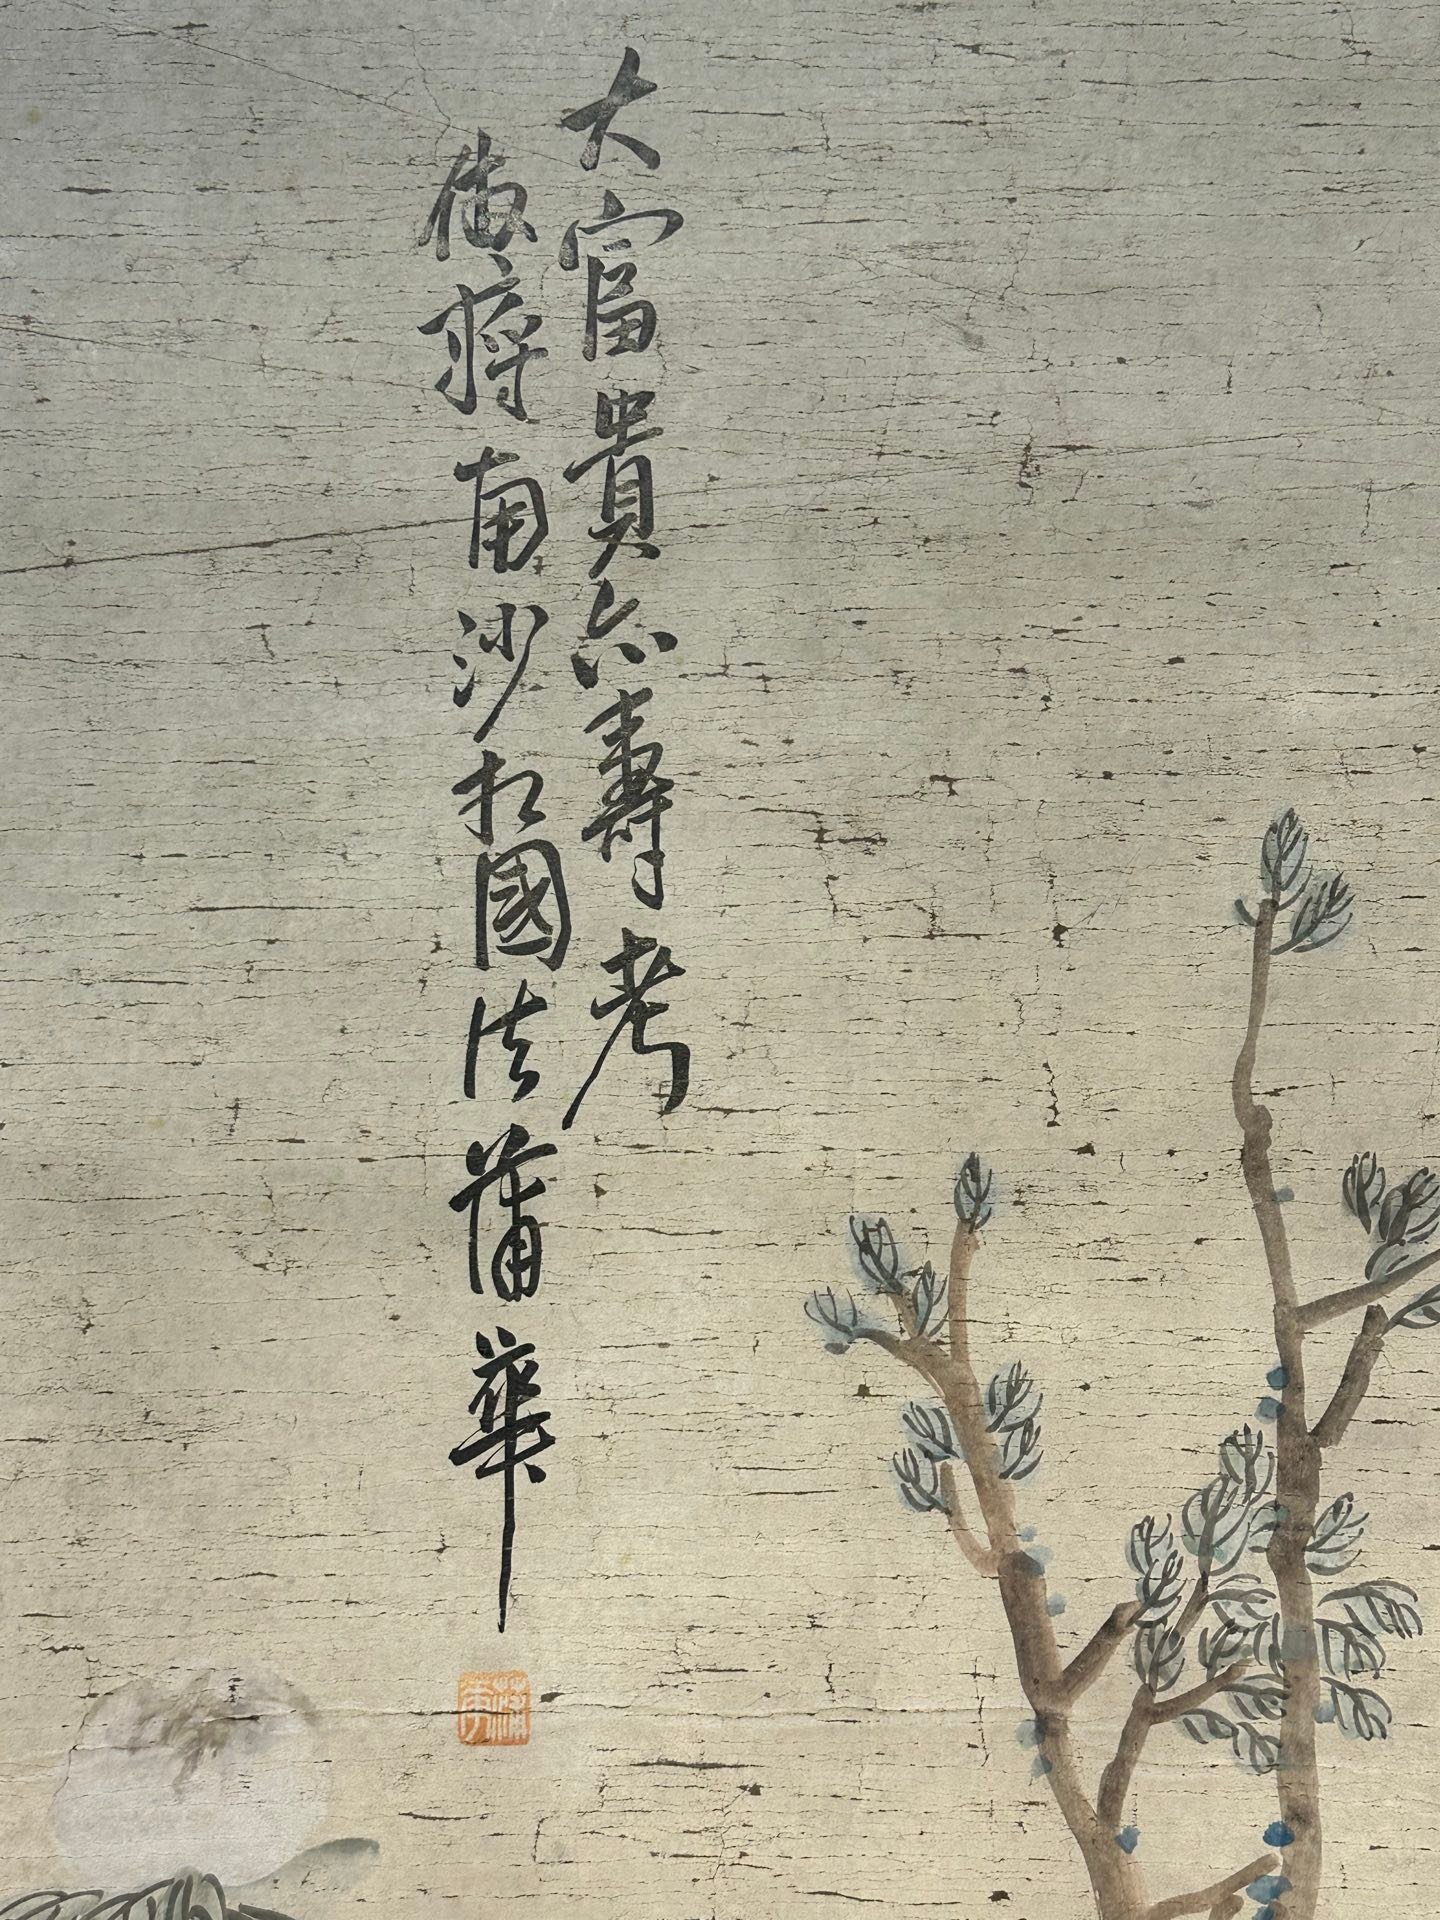 大富貴亦壽考
仿蔣南沙相國法蒲華
蒲華